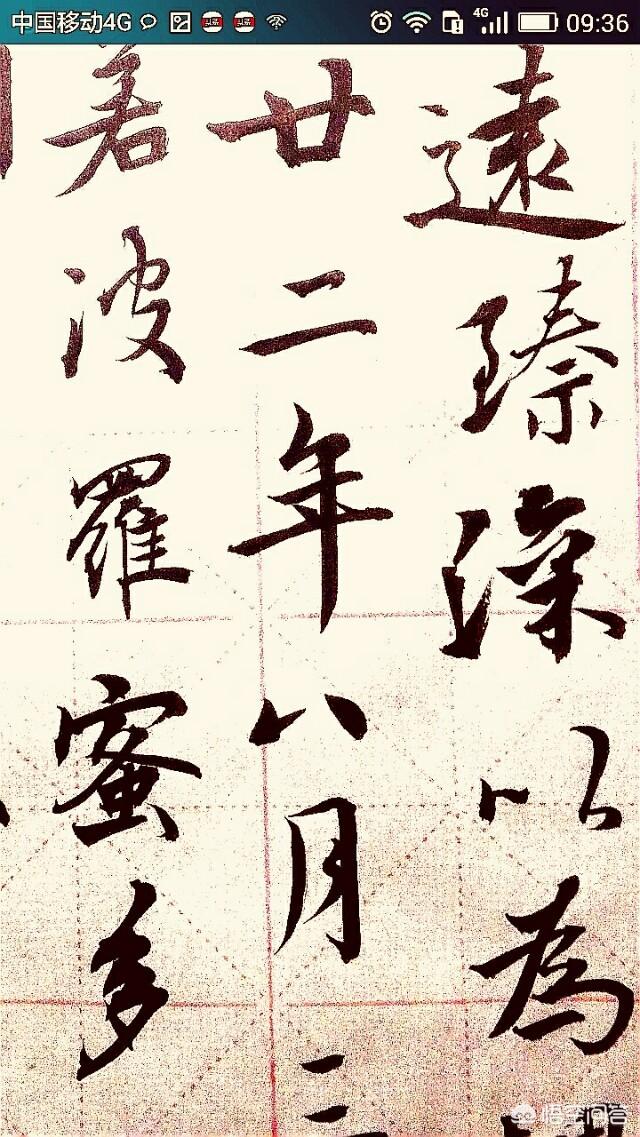 中国移动4G 4G 09:36
遠臻深以為
廿二年八月
若波羅蜜多
悟空问答